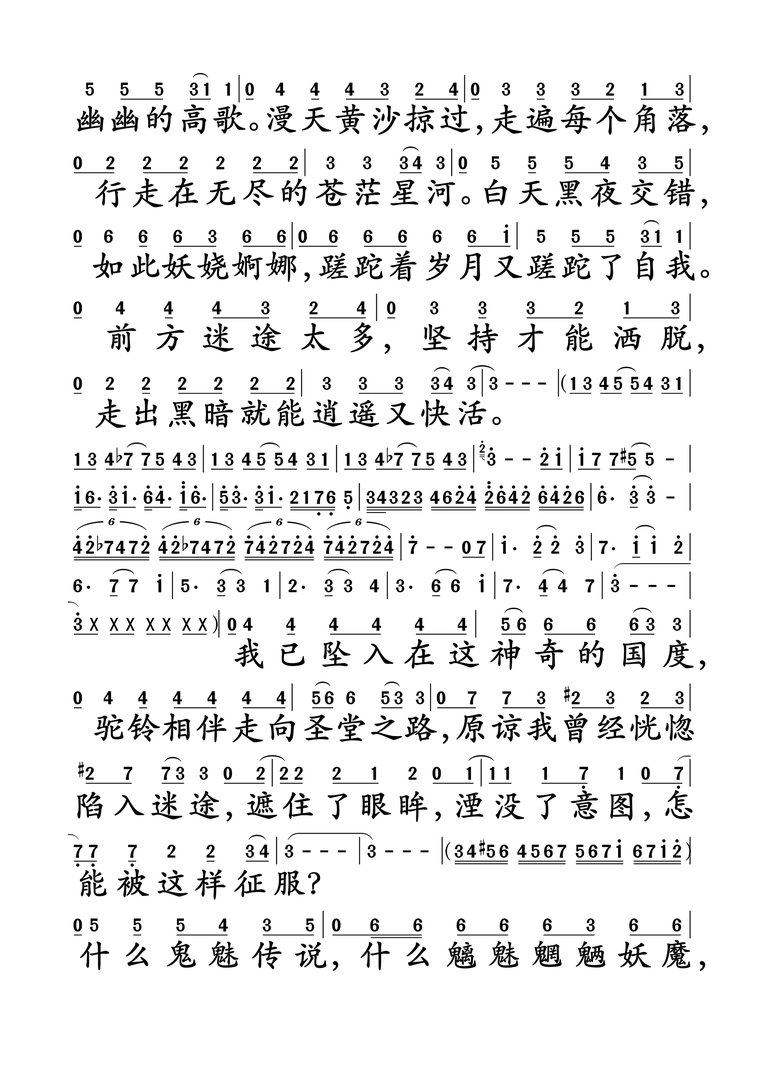 5 5 5 31 1 | 0 4 4 4 3 2 4 | 0 3 3 3 2 1 3 |
幽幽的高歌。漫天黄沙掠过,走遍每个角落,
0 2 2 2 2 2 2 | 3 3 34 3 | 0 5 5 5 4 3 5 |
行走在无尽的苍茫星河。白天黑夜交错,
0 6 6 6 3 6 6 | 0 6 6 6 6 6 i | 5 5 5 31 1 |
如此妖娆婀娜,蹉跎着岁月又蹉跎了自我。
0 4 4 4 3 2 4 | 0 3 3 3 2 1 3 |
前方迷途太多,坚持才能洒脱,
0 2 2 2 2 2 2 | 3 3 3 34 3 | 3 - - - | (13 455 54 31 |
走出黑暗就能逍遥又快活。
13 4♭7 75 43 | 13 45 54 31 | 13 4♭7 75 43 | 3 - - 2i | i7 7#5 5 - |
i6· 3i· 64· i6· | 53· 3i· 2176 5 | 34323 4624 2642 6426 | 6· 3 3 - |
6 6 6 6
42♭7472 42♭7472 742724 742724 | 7 - - 07 | i· 2 2 3 | 7· i i 2 |
6· 7 7 i | 5· 3 3 1 | 2· 3 3 4 | 3· 6 6 i | 7· 4 4 7 | 3 - - - |
3 X XX XX XX) | 04 4 4 4 4 | 56 6 6 63 3 |
我已坠入在这神奇的国度,
0 4 4 4 4 4 | 56 6 53 3 | 0 7 7 3 #2 3 2 3 |
驼铃相伴走向圣堂之路,原谅我曾经恍惚
#2 7 73 3 0 2 | 22 2 1 2 0 1 | 11 1 7 1 0 7 |
陷入迷途,遮住了眼眸,湮没了意图,怎
77 7 2 2 34 | 3 - - - | 3 - - - | (34#56 4567 567i 67i2)
能被这样征服?
05 5 5 4 3 5 | 0 6 6 6 6 3 6 6 |
什么鬼魅传说,什么魑魅魍魉妖魔,